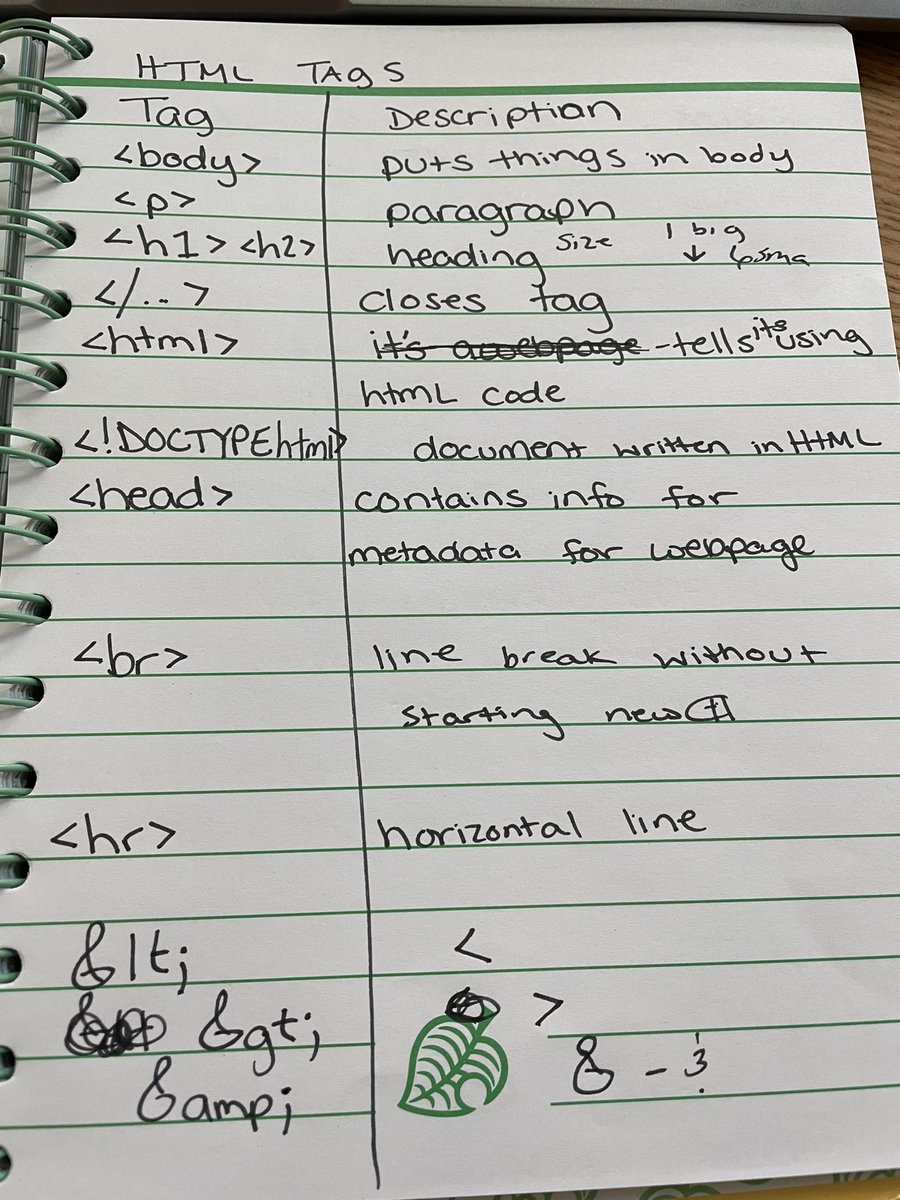 HTML TAGS
Tag Description
<body> puts things in body
<p> paragraph
<h1> <h2> heading size 1 big ↓ 6 sma
</...> closes tag
<html> it's a webpage - tells its using
html code
<!DOCTYPEhtml> document written in HTML
<head> contains info for
metadata for webpage
<br> line break without
starting new
<hr> horizontal line
&lt; <
&gt; >
&amp; & -